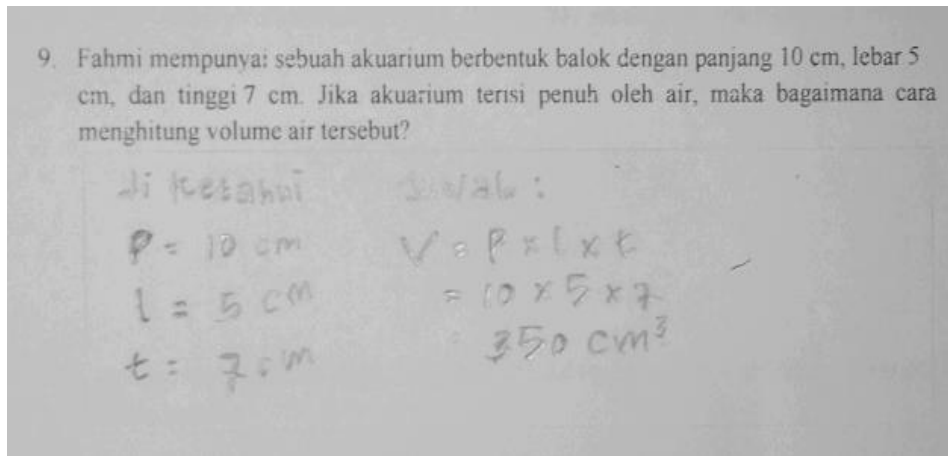 9. Fahmi mempunyai sebuah akuarium berbentuk balok dengan panjang 10 cm, lebar 5
cm, dan tinggi 7 cm. Jika akuarium terisi penuh oleh air, maka bagaimana cara
menghitung volume air tersebut?
di ketahui
Jawab :
P = 10 cm
V = P x l x t
l = 5 cm
= 10 x 5 x 7
t = 7 cm
350 cm³